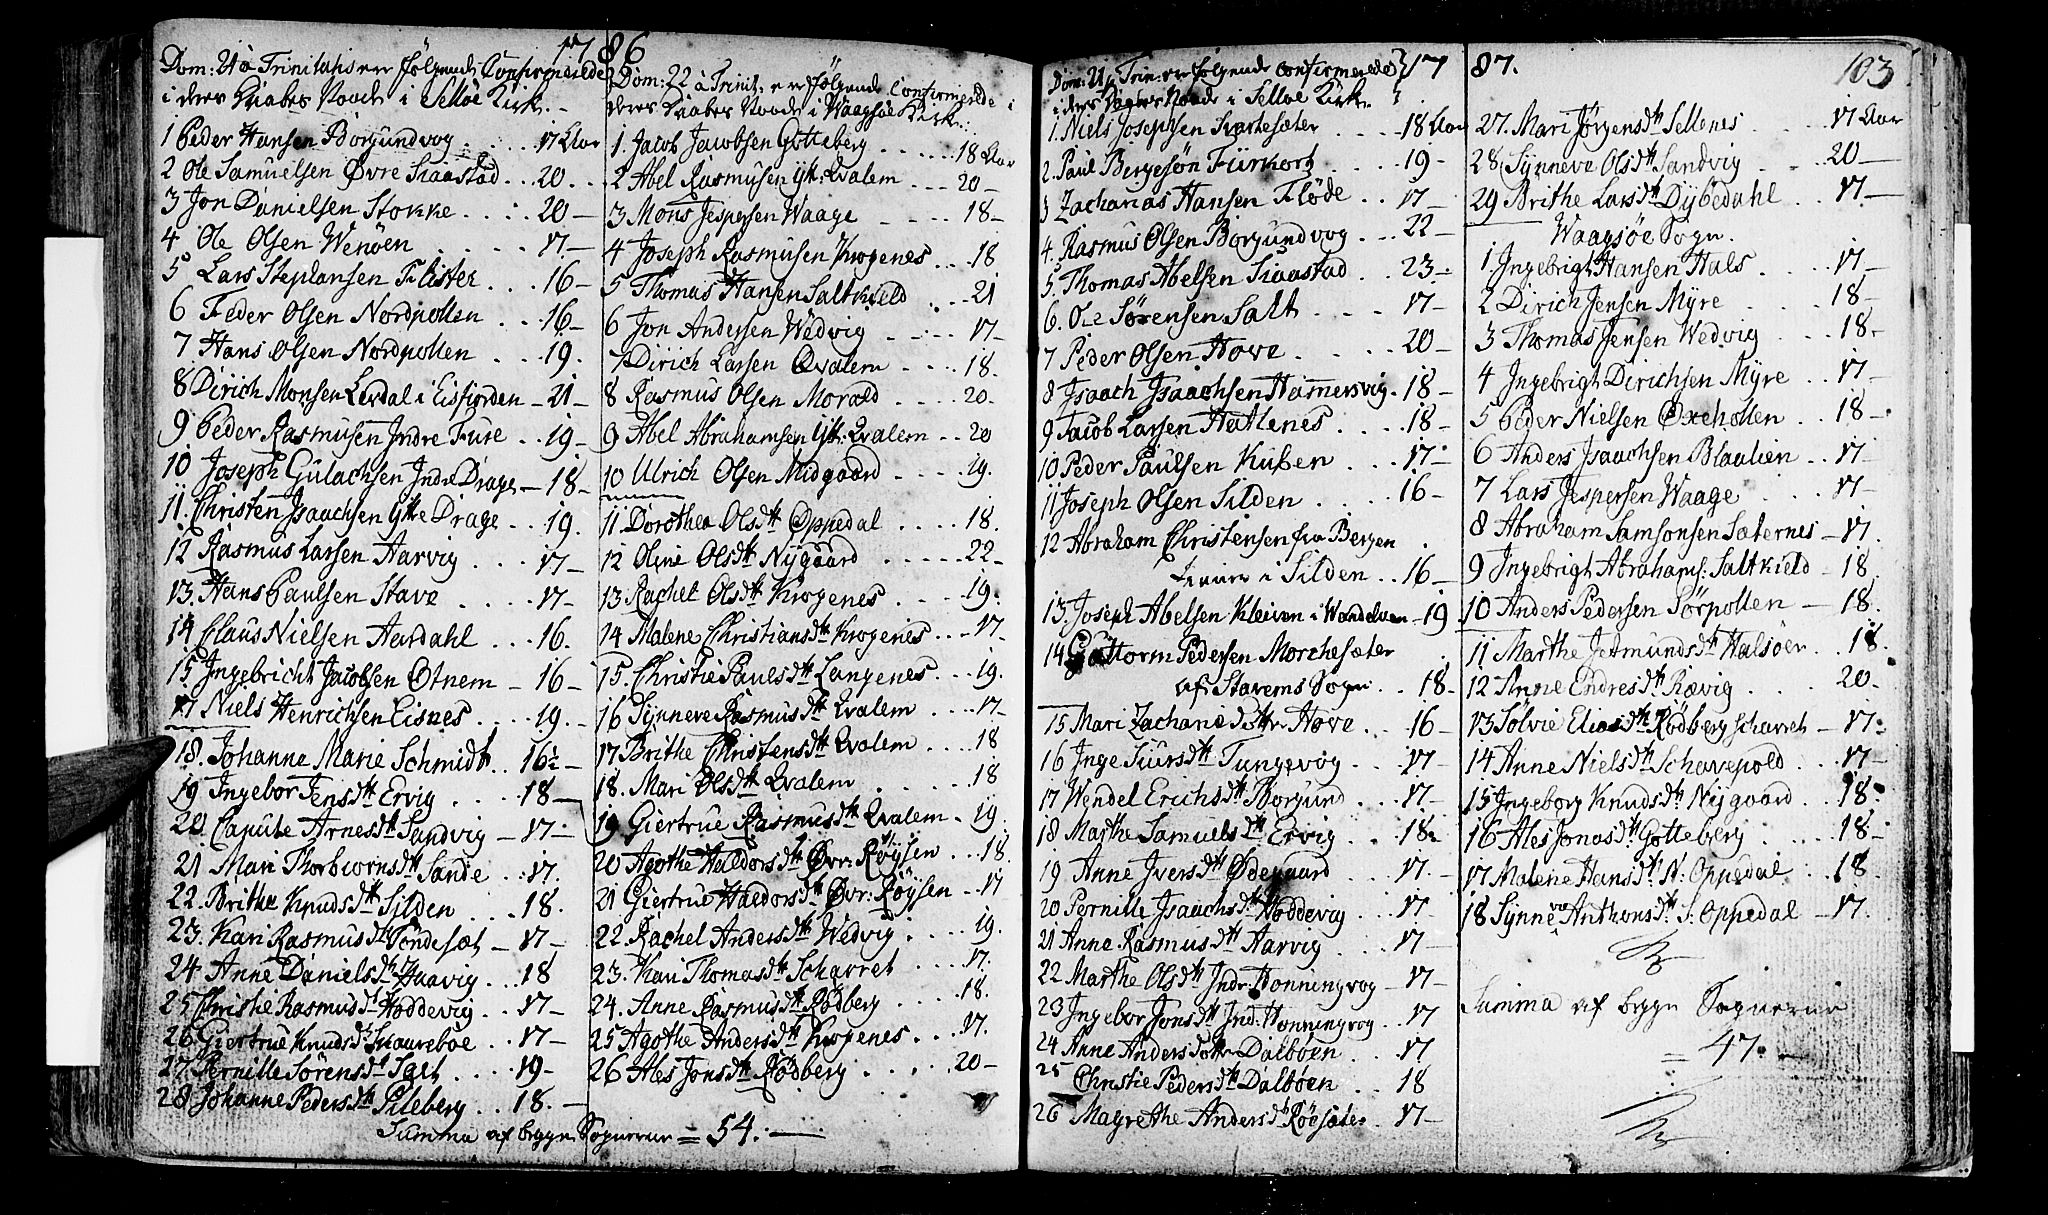 1786
Dom: 21 à Trinitatis ere følgende Confirmerede
i deres Daabes Naade i Selløe Kirk:
1 Peder Hansen Borgundvog . . . 17 Aar
2 Ole Samuelsen Øvre Staastad . . 20 .
3 Jon Danielsen Stokke . . . . 20 –
4 Ole Olsen Wenøen . . . . 17. –
5 Lars Stephansen Flister . . . 16 –
6 Peder Olsen Nordpollen . . . 16 –
7. Hans Olsen Nordpollen . . . 19.
8 Dirich Monsen Lerdal i Eisfiorden – 21 –
9 Peder Rasmusen Indre Fure . . 19 –
10 Joseph Gulachsen Indre Drage – 18 –
11. Christen Isaachsen Ytre Drage . . 19.
12 Rasmus Larsen Aarvig . . . 17 –
13. Hans Paulsen Stave . . . . 17 –
14 Claus Nielsen Aardahl . . . 16.
15 Ingebricht Jacobsen Otnem – 16 –
17 Niels Henrichsen Eisnes . . . . 19. –
18. Johanne Marie Schmidt . . 16½ –
19 Ingebor Jensdtr Ervig . . . . 18 –
20. Capute Arnesdtr Sandvig – 17 –
21 Mari Thorbiornsdtr Sande . . . 17.
22. Brithe Knudsdtr Silden . . . . 18.
23. Kari Rasmusdtr Tøndesæt – 17 –
24 Anne Danielsdtr Haavig . . . 18
25 Christie Rasmusdtr Hoddevig . . . 17 –
26 Giertrue Knudsdtr Skaareboe . . . 17 –
27. Pernille Sørensdtr Salt . . . . 19 –
28 Johanne Pedersdtr Pileberg . . 18. –
Dom: 22 à Trinit: ere følgende Confirmerede i
deres Daabes Naade i Waagsøe Kirk:
1. Jacob Jacobsen Gotteberg . . . . . . 18 Aar
2 Abel Rasmusen Ytt: Qvalem . . . 20 –
3 Mons Jespersen Waage . . . . 18 –
4 Joseph Rasmusen Krogenes . . . 18
5 Thomas Hansen Saltkield . . . 21
6 Jon Andersen Wedvig . . . . 17 –
7 Dirich Larsen Qvalem . . . . 18.
8 Rasmus Olsen Morald . . . . 20.
9 Abel Abrahamsen Ytt: Qvalem . . 20
10 Ulrich Olsen Midgaard . . . . 19.
11. Dorothea Olsdtr Oppedal . . . . 18.
12 Oline Olsdtr Nygaard . . . . . 22 –
13. Rachel Olsdtr Krogenes . . . . 19.
14 Malene Christiansdtr Krogenes . . . 17.
15. Christie Paulsdtr Langenes . . . 19.
16 Synneve Rasmusdtr Qvalem . . . . 17 –
17 Brithe Christensdtr Qvalem . . . . 18
18. Mari Olsdtr Qvalem . . . . . 18
19 Giertrue Rasmusdtr Qvalem . 19.
20 Agothe Haldorsdtr Øvr: Røysen . . . 18.
21 Giertrue Haldorsdtr Øvr: Røysen – 17
22. Rachel Andersdtr Wedvig . . . . 19.
23. Kari Thomasdtr Scharret . . . . 17.
24. Anne Rasmusdtr Rødberg . . . . 18.
25 Agothe Andersdtr Krogenes . . . . 17.
26 Ales Jonsdtr Rødberg . . . . . 20 –
Summa af begge Sognerne = 54. –
1787.
103
Dom: 21 p: Trin: ere følgende Confirmerede
i deres Daabes Naade i Selløe Kirk:
1. Niels Josephsen Svartesæter . . . . 18 Aar
2. Paul Bergesøn Fürkort . . . . 19 –
3 Zacharias Hansen Fløde . . . 17 –
4. Rasmus Olsen Borgundvog . . . 22 –
5. Thomas Abelsen Staastad . . . 23 –
6. Ole Sørensen Salt . . . . 17 –
7 Peder Olsen Hove . . . . . 20 –
8 Isaach Isaachsen Hamersvig . 18 –
9 Jacob Larsen Hatlenes . . . . 18 –
10 Peder Paulsen Kußen . . . 17 –
11 Joseph Olsen Silden . . . 16 –
12 Abraham Christensen fra Bergen
tienner i Silden . . 16 –
13. Joseph Abelsen Kleiven i Wandelven – 19
14 Guttorm Pedersen Morchesæter
af Stavems Sogn . . 18 –
15 Mari Zachariædotter Hove . . 16 –
16 Inge Siursdtr Tungevog . . . 17 –
17 Wendel Erichsdtr Borgund . . . 17 –
18 Marthe Samuelsdtr Ervig . . . 18 –
19 Anne Iversdtr Ødegaard . . . 17. –
20 Pernille Isaachsdtr Hoddevig . . . 17 –
21 Anne Rasmusdtr Aarvig . . . 17 –
22 Marthe Olsdtr Indr: Honningvog – 17 –
23 Ingebor Jonsdtr Ind: Honningvog . . 17
24 Anne Andersdotter Dalbøen . . . 17
25 Christie Pedersdtr Dalbøen . . 18
26 Magrethe Andersdtr Røesæter . . 17 –
27. Mari Jørgensdtr Sellenes . . . 17 Aar
28. Synneve Olsdtr Sandvig . . . 20 –
29 Brithe Larsdtr Dybedahl . . . 17 –
Waagsøe Sogn.
1. Ingebrigt Hansen Hals . . . . 17 –
2 Dirich Jensen Myre . . . . 18 –
3 Thomas Jensen Wedvig . . . 18 –
4 Ingebrigt Dirichsen Myre . . . 17 –
5 Peder Nielsen Oxeholten . . . 18 –
6 Anders Isaachsen Blaalien . . 17 –
7 Lars Jespersen Waage . . . . 17 –
8 Abraham Samsonsen Sæternes – 17.
9 Ingebrigt Abrahams: Saltkield – 18.
10 Anders Pedersen Sørpollen – 18.
11 Marthe Jetmundsdtr Halsøer . . 18.
12 Anne Endresdtr Rævig . . . . 20 –
13 Sølvie Eliasdtr Rødberg scharret – 17.
14 Anne Nielsdtr Schavepold . . . 17 –
15 Ingeborg Knudsdtr Nygaard . . 18.
16 Ales Jonasdtr Gotteberg . . . . 18 –
17 Malene Hansdtr N: Oppedal . . 18.
18 Synneve Anthonsdtr S. Oppedal – 17.
Summa af begge Sognerne
= 47. –